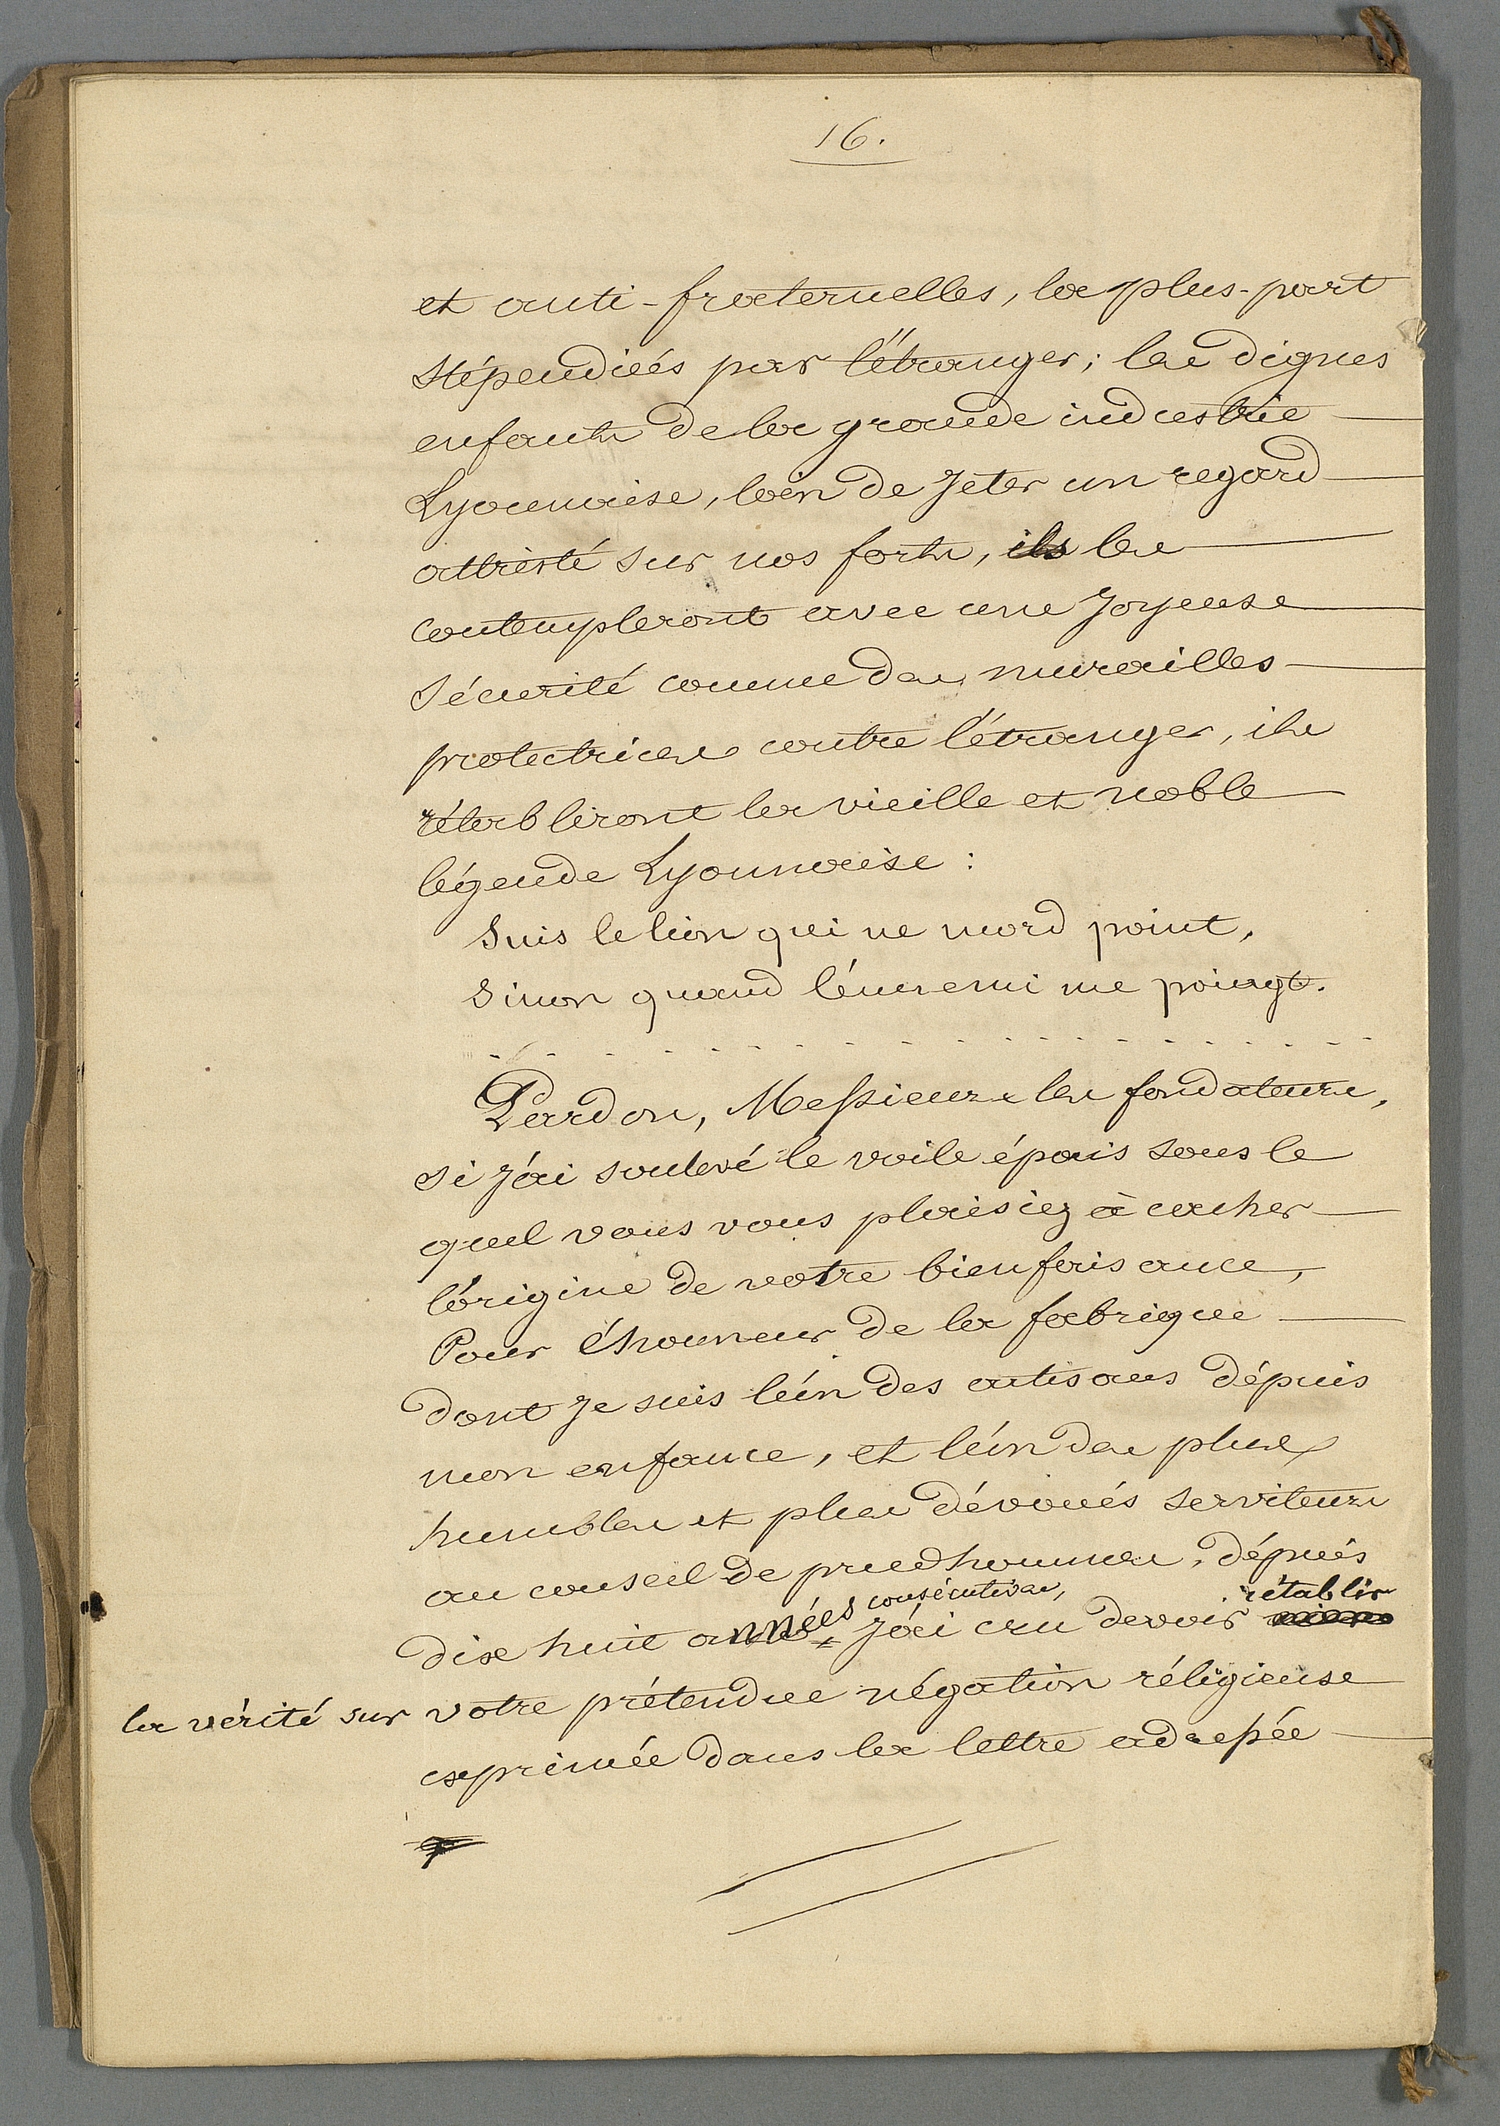 16.
et anti-fraternelles, la plus-part
stépendiées par l'étranger; les dignes
enfants de la grande industrie
Lyonnaise, loin de jeter un regard
attristé sur nos forts, ils les
contempleront avec une joyeuse
sécurité comme des murailles
protectrices contre l'étranger, ils
rétabliront la vieille et noble
légende Lyonnaise :
Suis le lion qui ne mord point,
Sinon quand l'énnemi me poingt.
Pardon, Messieurs les fondateurs,
si j'ai soulevé le voile épais sous le
quel vous vous plaisiez à cacher
l'origine de votre bienfaisance,
Pour l'honneur de la fabrique
dont je suis l'un des artisans dépuis
mon enfance, et l'un des plus
humbles et plus dévoués serviteurs
au conseil de prudhommes, dépuis
consécutives, rétablir
dix huit années j'ai cru devoir
la vérité sur votre prétendue négation réligieuse
exprimée dans la lettre adressée